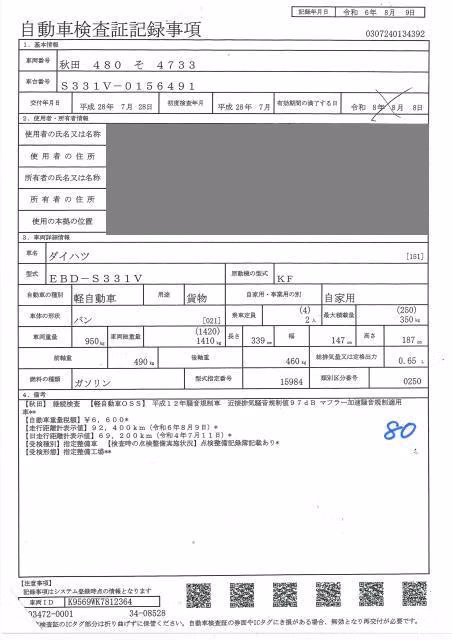 記録年月日 令和 6年 8月 9日
自動車検査証記録事項
0307240134392
1. 基本情報
車両番号 秋田 480 そ 4733
車台番号 S331V-0156491
交付年月日 平成 28年 7月 28日 初度検査年月 平成 28年 7月 有効期間の満了する日 令和 8年 8月 8日
2. 使用者・所有者情報
使用者の氏名又は名称
使用者の住所
所有者の氏名又は名称
所有者の住所
使用の本拠の位置
3. 車両詳細情報
車名 ダイハツ [151]
型式 EBD-S331V 原動機の型式 KF
自動車の種別 軽自動車 用途 貨物 自家用・事業用の別 自家用
車体の形状 バン [021] 乗車定員 (4) 2人 最大積載量 (250) 350kg
車両重量 950kg 車両総重量 (1420) 1410kg 長さ 339cm 幅 147cm 高さ 187cm
前軸重 490kg 後軸重 460kg 総排気量又は定格出力 0.65 L
燃料の種類 ガソリン 型式指定番号 15984 類別区分番号 0250
4. 備考
【秋田】 継続検査 【軽自動車OSS】 平成12年騒音規制車 近接排気騒音規制値97dB マフラー加速騒音規制適用
車**
【自動車重量税額】¥6,600*
【走行距離計表示値】92,400km(令和6年8月9日)*
【旧走行距離計表示値】69,200km(令和4年7月11日)*
【受検種別】指定整備車 【検査時の点検整備実施状況】点検整備記録簿記載あり*
【受検形態】指定整備工場**
80
【注意事項】
記録事項はシステム登録時点の情報となります
車両ID K9569WK7812364
03472-0001 34-08528
検査証のICタグ部分は折り曲げずに保管ください。自動車検査証の券面やICタグにき損がある場合、無効となり再交付が必要です。